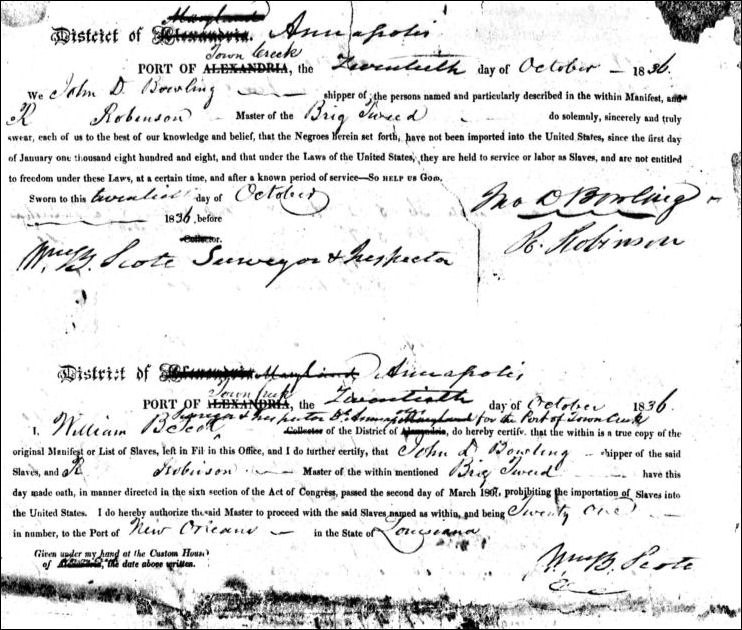 Maryland
District of Alexandria. Annapolis
Town Creek
PORT OF ALEXANDRIA, the Twentieth day of October 1836.
We John D. Bowling shipper of the persons named and particularly described in the within Manifest, and
R Robinson Master of the Brig Tweed do solemnly, sincerely and truly
swear, each of us to the best of our knowledge and belief, that the Negroes herein set forth, have not been imported into the United States, since the first day
of January one thousand eight hundred and eight, and that under the Laws of the United States, they are held to service or labor as Slaves, and are not entitled
to freedom under these Laws, at a certain time, and after a known period of service—So HELP US GOD.
Sworn to this twentieth day of October
1836, before
Jno D Bowling
R. Robinson
Collector.
Wm B. Scott Surveyor & Inspector
District of Alexandria Maryland Annapolis
Town Creek
PORT OF ALEXANDRIA, the Twentieth day of October 1836
Surveyor & Inspector Dt. Annapolis Maryland for the Port of Town Creek
I, William B Scott Collector of the District of Alexandria, do hereby certify, that the within is a true copy of the
original Manifest or List of Slaves, left in File in this Office, and I do further certify, that John D. Bowling shipper of the said
Slaves, and R Robinson Master of the within mentioned Brig Tweed have this
day made oath, in manner directed in the sixth section of the Act of Congress, passed the second day of March 1807, prohibiting the importation of Slaves into
the United States. I do hereby authorize the said Master to proceed with the said Slaves named as within, and being Twenty One
in number, to the Port of New Orleans in the State of Louisiana
Given under my hand at the Custom House
of Alexandria, the date above written.
Wm B. Scott